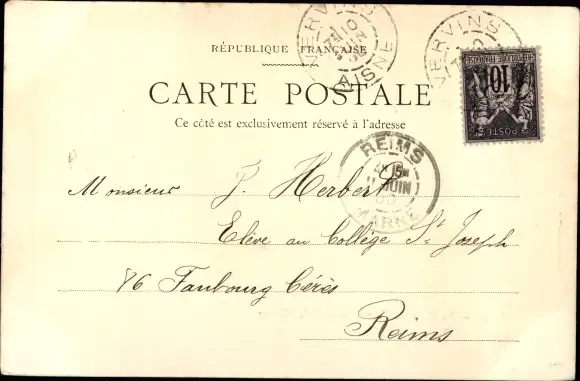 VERVINS
AISNE
VERVINS
RÉPUBLIQUE FRANÇAISE
CARTE POSTALE
Ce côté est exclusivement réservé à l'adresse
POSTE
10
REPUBLIQUE FRANÇAISE
REIMS
JUIN
MARNE
Monsieur J. Herbert
Elève au Collège St Joseph
86 Faubourg Cérès
Reims